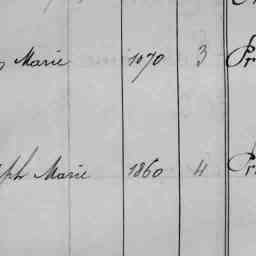 Marie 1870 3 Pr
ph Marie 1860 4 Pr